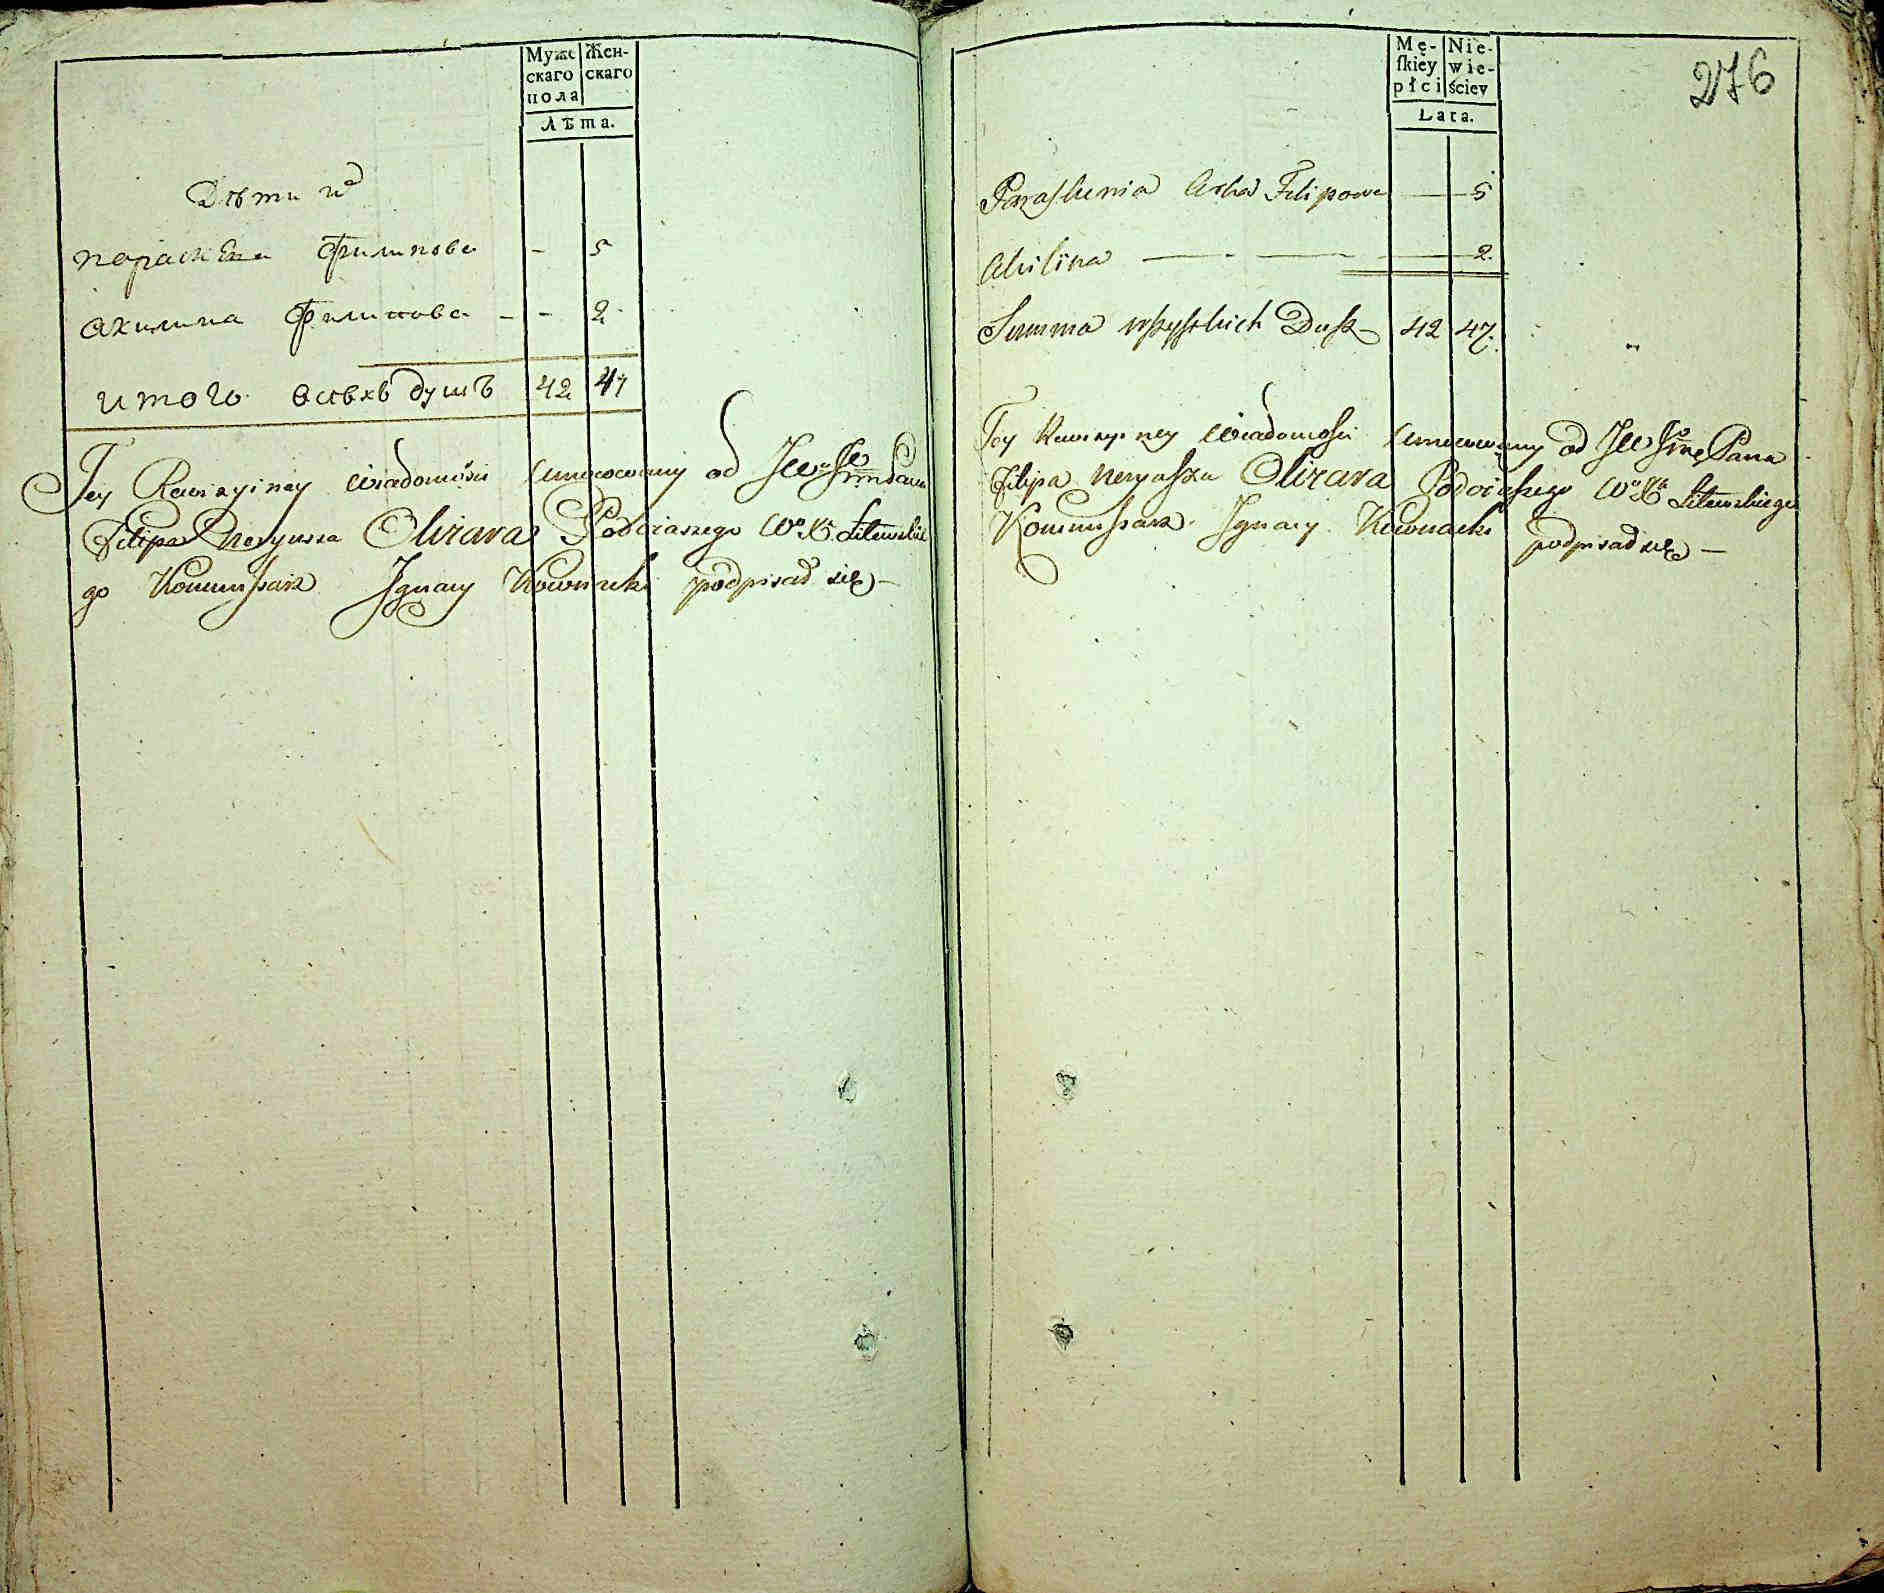 Муже Жен-
скаго скаго
пола
Лѣта.
Дѣти их
Параскева Филипова - 5
Акилина Филипова - - 2
итого всѣхъ душъ 42 47
Tey Rewizyiney Wiadomości Umocowany od JW Jmć Pana
Filipa Neryusza Olizara Podczaszego Wo Xa Litewskie
go Kommissarz Ignacy Kownacki podpisał się -
276
Mę- Nie-
skiey wie-
płci ściey
Lata.
Paraskewia Corka Filipowa — 5
Akilina — - — — 2
Summa wszystkich Dusz 42 47.
Tey Rewizyiney Wiadomości Umocowany od JW Jmć Pana
Filipa Neryusza Olizara Podczaszego Wo Xa Litewskiego
Kommissarz Ignacy Kownacki podpisał się —